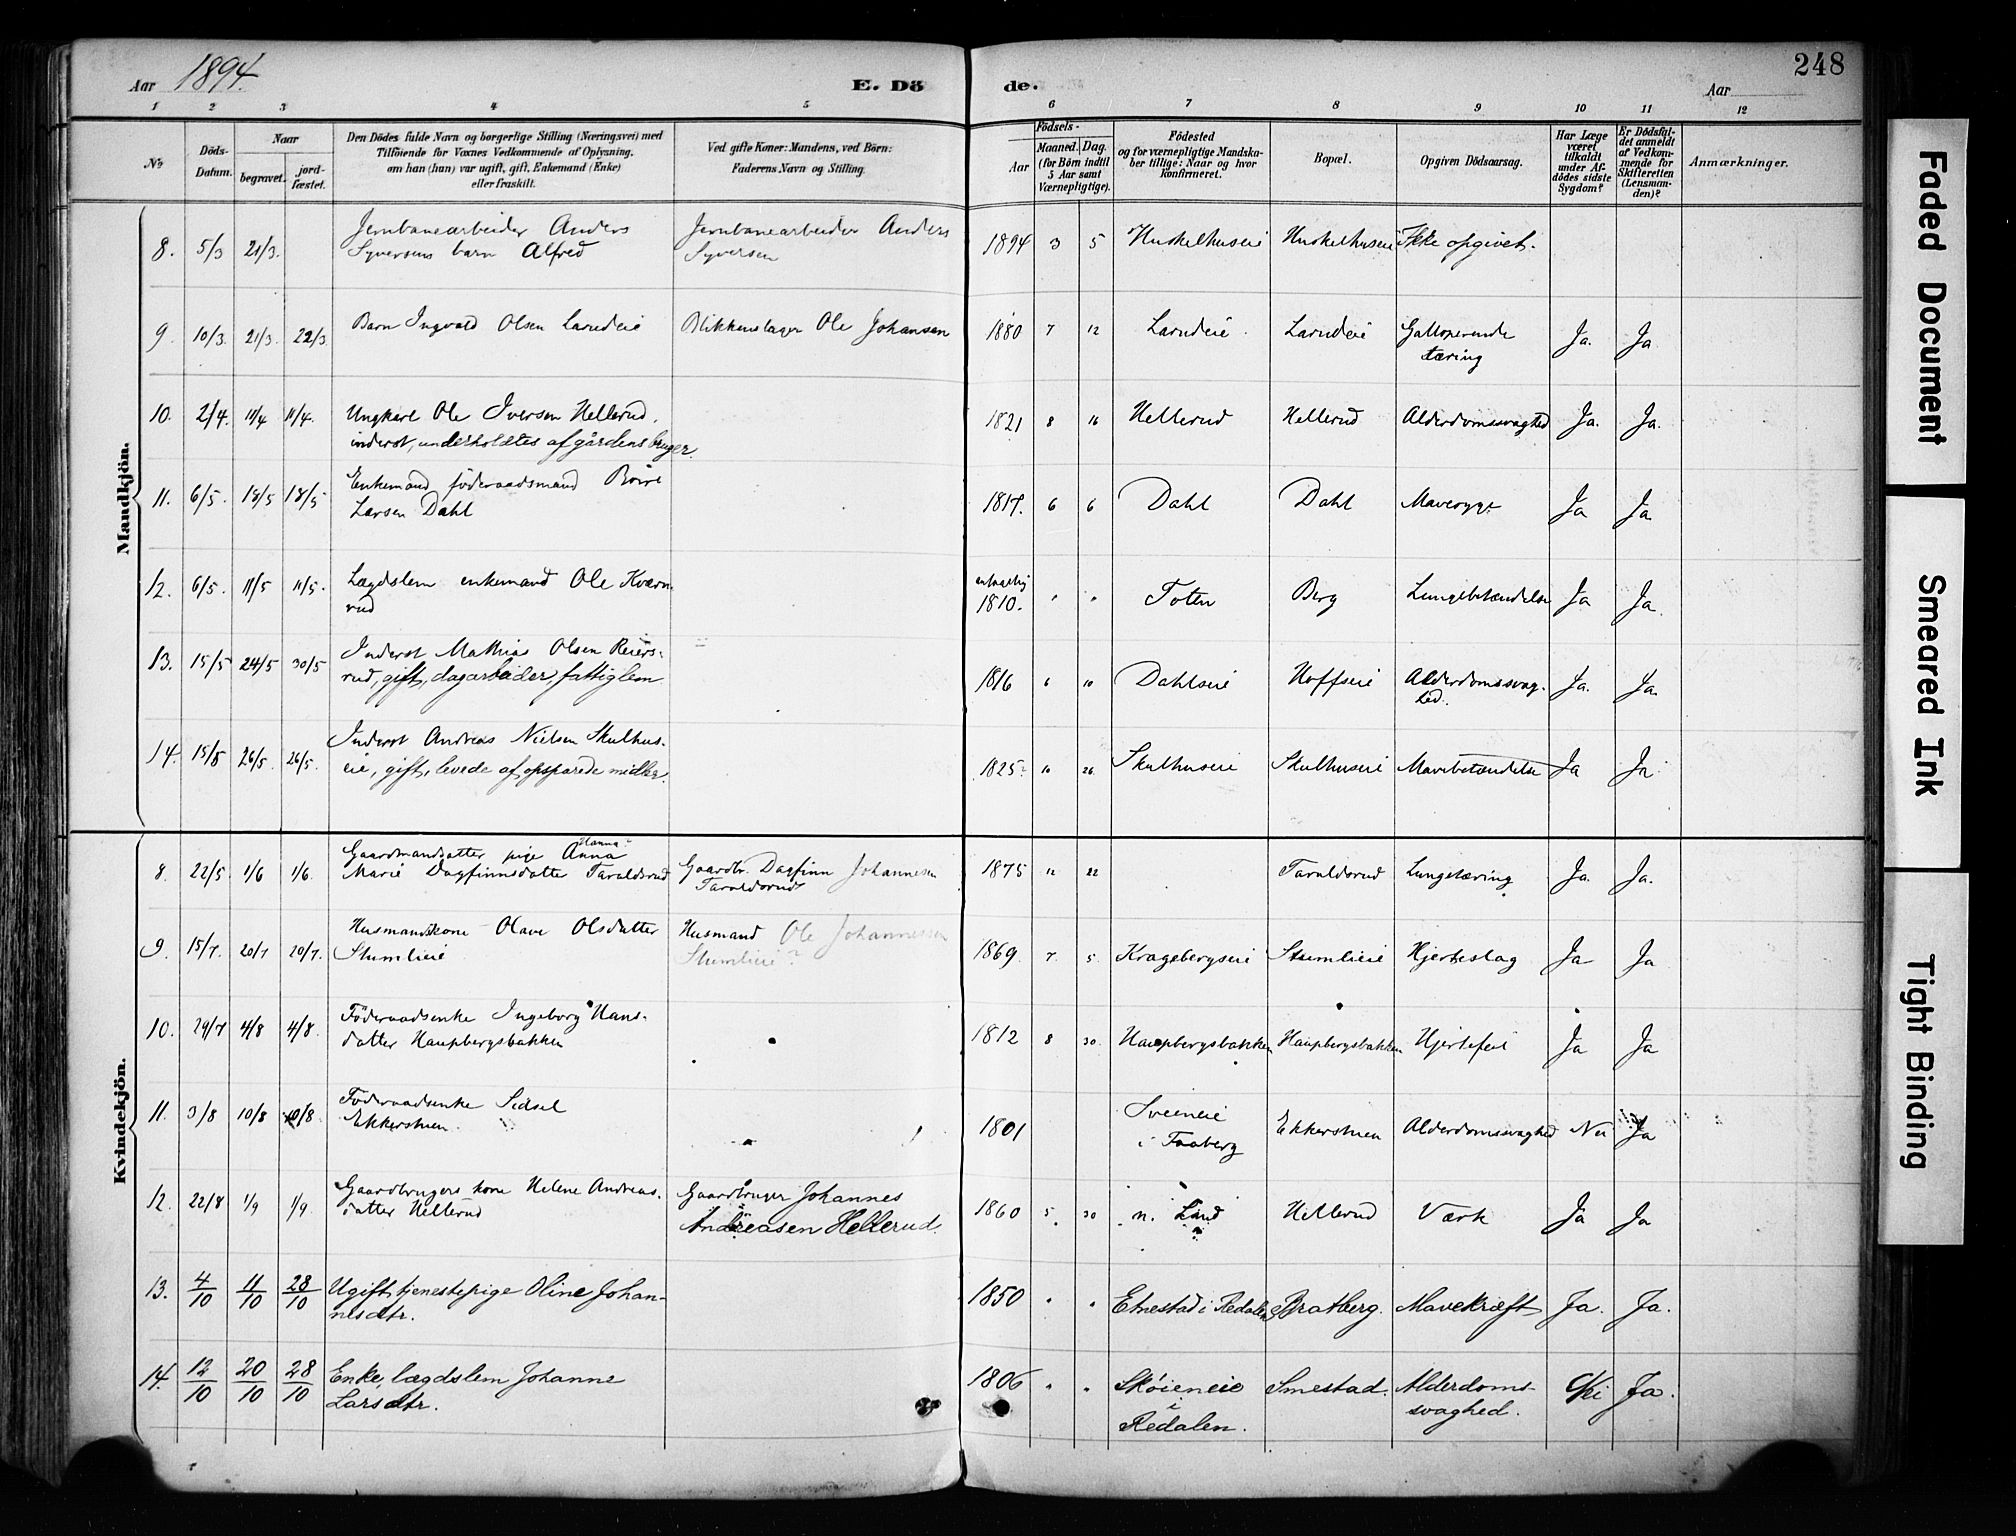 Aar 1894.
E. Dö
de.
Aar
248
1 2 3 4 5 6 7 8 9 10 11 12
No
Döds-Datum.
Naar
begravet.
jordfæstet.
Den Dödes fulde Navn og borgerlige Stilling (Næringsvei) med
Tilföiende for Voxnes Vedkommende af Oplysning,
om han (hun) var ugift, gift, Enkemand (Enke)
eller fraskilt.
Ved gifte Koner: Mandens, ved Börn:
Faderens Navn og Stilling.
Födsels-
Aar
Maaned. Dag.
(for Börn indtil
5 Aar samt
Værnepligtige).
Födested
og for værnepligtige Mandska-
ber tillige: Naar og hvor
konfirmeret.
Bopæl.
Opgiven Dödsaarsag.
Har Læge
været
tilkaldt
under Af-
dödes sidste
Sygdom?
Er Dödsfal-
det anmeldt
af Vedkom-
mende for
Skifteretten
(Lensman-
den)?
Anmærkninger.
Mandkjön.
8. 5/3 21/3. Jernbanearbeider Anders Jernbanearbeider Anders 1894 3 5 Huskelhuseie Huskelhuseie Ikke opgivet.
Syversens barn Alfred Syversen
9. 10/3. 21/3. 22/3 Barn Ingvald Olsen Larudeie Blikkenslager Ole Johansen 1880 7 12 Larudeie Larudeie Galloperende Ja. Ja
tæring
10. 2/4. 11/4 11/4. Ungkarl Ole Iversen Hellerud, 1821 8 16 Hellerud Hellerud Alderdomssvaghed Ja. Ja.
inderst, underholdtes af gårdens bruger.
11. 6/5. 18/5 18/5 Enkemand föderaadsmand 1817. 6 6 Dahl Dahl Ja Ja
Larsen Dahl
12. 6/5. 11/5 11/5. Lægdslem enkemand Ole Kværn- 1810. " " Toten Berg Lungebetændelse Ja Ja.
rud
13. 15/5 24/5 30/5 Inderst Mathias Olsen Reiers- 1816 6 10 Dahlseie Hoffseie Alderdomssvag- Ja. Ja.
rud, gift, dagarbeider, fattiglem hed.
14. 15/5 26/5. 26/5. Inderst Andreas Nielsen Skulhus- 1825? 10 26 Skulhuseie Skulhuseie Mavebetændelse Ja Ja
eie, gift, levede af opsparede midler.
Kvindekjön.
8. 22/5 1/6 1/6. Gaardmandsdatter pige Anna Hanna? Gaardbr. Dagfinn Johannesen 1875 12 22 Taraldsrud Lungetæring Ja. Ja.
Marie Dagfinnsdatter Taraldsrud Taraldsrud
9. 15/7. 20/7 20/7. Husmandskone Olave Olsdatter Husmand Ole Johannessen 1869 7. 5. Kragebergseie Stumlieie Hjerteslag Ja Ja
Stumlieie Stumlieie?
10. 29/7 4/8 4/8. Föderaadsenke Ingeborg Hans- 1812 8 30. Haupbergsbakken Haupbergsbakken Hjertefeil Ja Ja
datter Haupbergsbakken
11. 3/8 10/8 10/8. Föderaadsenke Sidsel 1801 Sveeneie Ekkerstuen Alderdomssvaghed Nei Ja
Ekkerstuen. i Faaberg
12. 22/8 1/9 1/9. Gaardbrugers kone Helene Andreas- Gaardbruger Johannes 1860 5. 30 n. Land Hellerud Værk Ja Ja
datter Hellerud Andreasen Hellerud.
13. 4/10 11/10 28/10 Ugift tjenestepige Oline Johan- 1850 " " Etnestad i Redalen Bratberg. Mavekræft Ja. Ja.
nesdtr.
14. 12/10 20/10 28/10 Enke, lægdslem Johanne 1806 " " Sköieneie Smestad. Alderdoms- Nei Ja.
Larsdtr. i svaghed.
Redalen.
Faded Document
Smeared Ink
Tight Binding